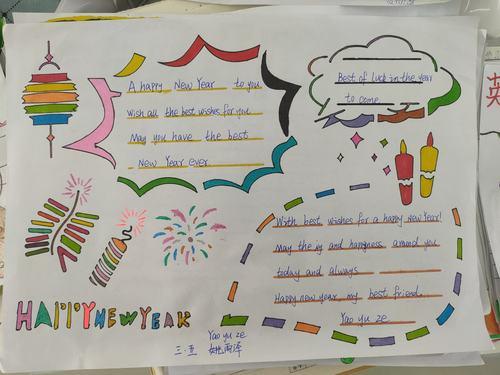 A happy New Year to you
wish all the best wishes for you.
May you have the best
New Year ever
Best of luck in the year
to come
With best wishes for a happy new year!
May the iy and happness around you
today and always
Happy new year my best friend.
Yao yu ze
HAPPY NEW YEAR
Yao yu ze
三.五 姚雨泽
英